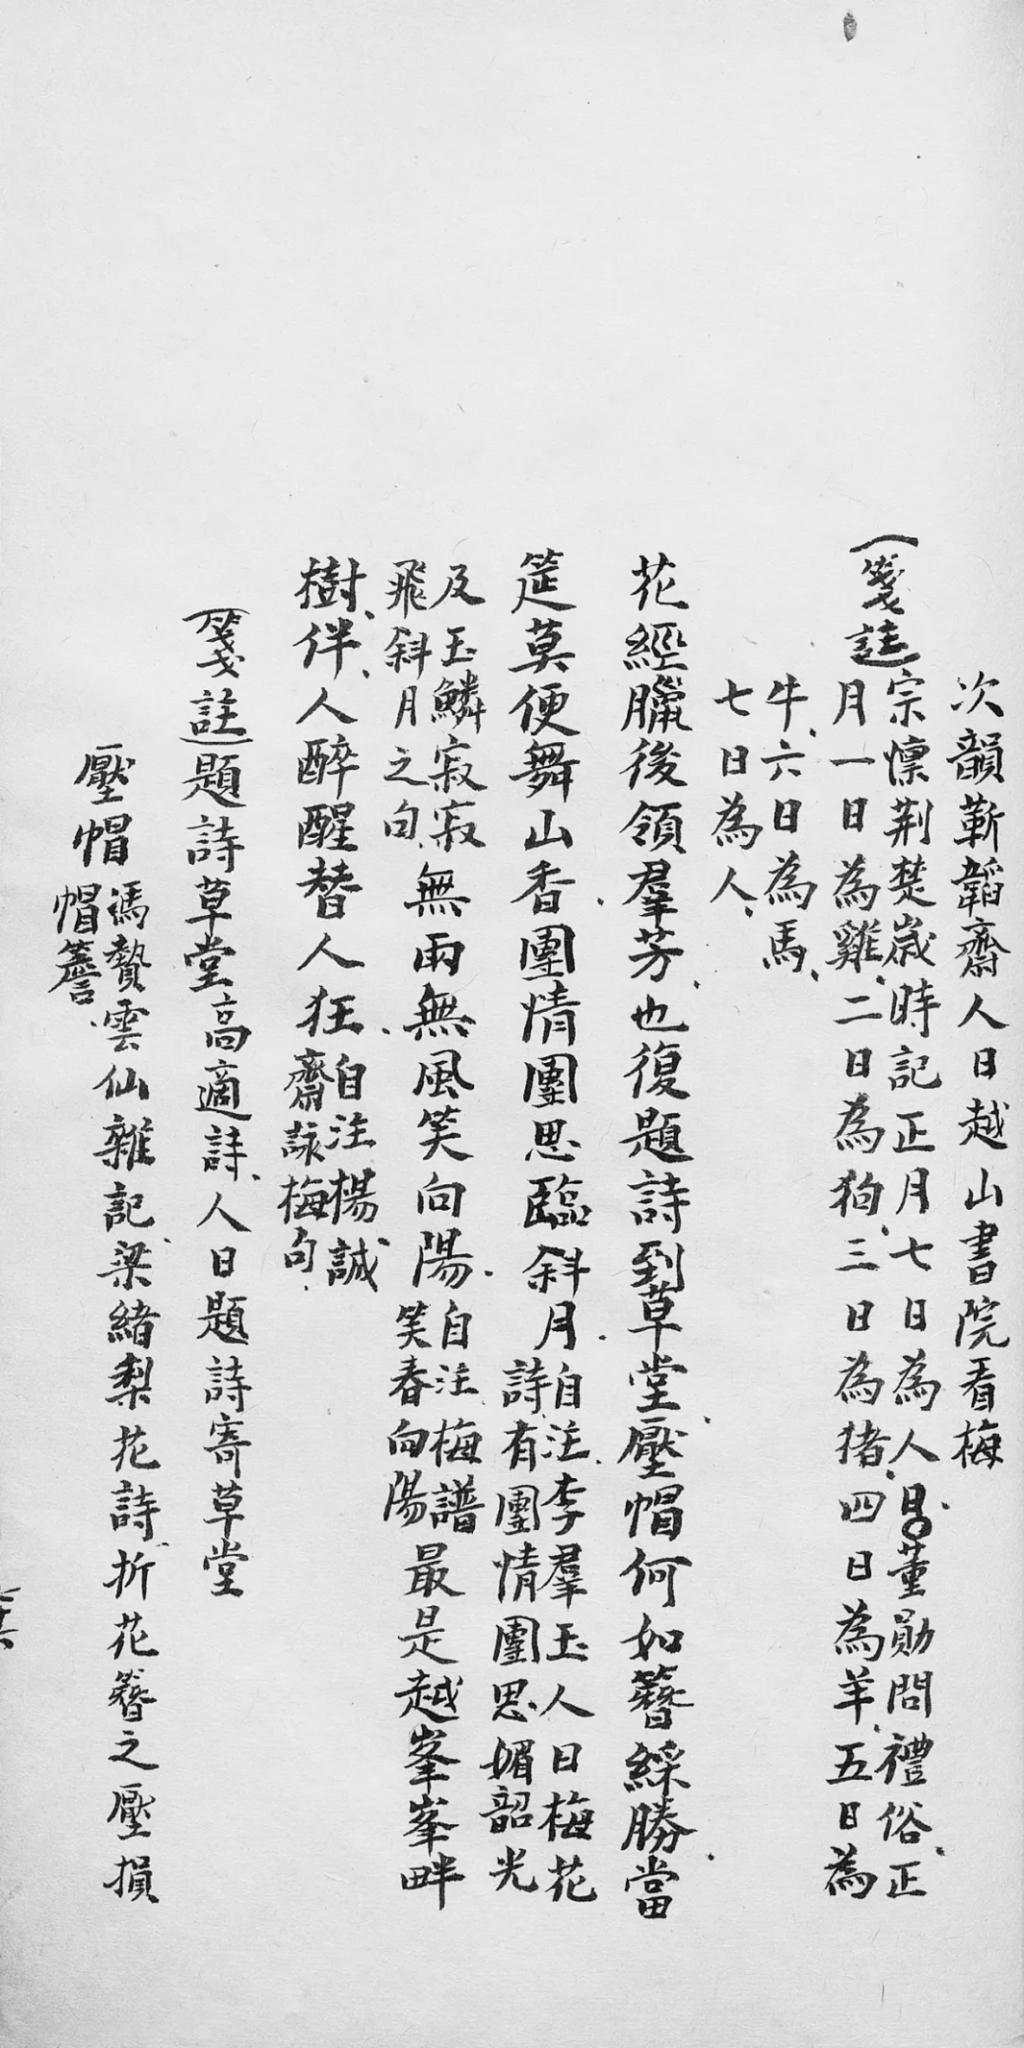 次韻靳韜齋人日越山書院看梅
〔箋註〕宗懍荆楚歲時記正月七日為人日董勛問禮俗正
月一日為雞二日為狗三日為猪四日為羊五日為
牛六日為馬
七日為人
花經臘後領羣芳也復題詩到草堂壓帽何如簪綵勝當
筵莫便舞山香團情團思臨斜月自注李羣玉人日梅花
詩有團情團思媚韶光
及玉鱗寂寂
飛斜月之句無雨無風笑向陽自注梅譜
笑春向陽最是越峯峯畔
樹伴人醉醒替人狂自注楊誠
齋詠梅句
〔箋註〕題詩草堂高適詩人日題詩寄草堂
壓帽馮贄雲仙雜記梁緒梨花詩折花簪之壓損
帽簷